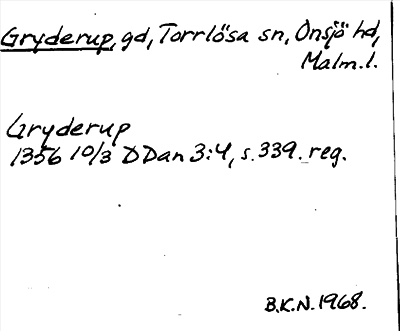 Gryderup, gd, Torrlösa sn, Onsjö hd,
Malm.l.
Gryderup
1356 10/3 DDan 3:4, s. 339. reg.
B.K.N. 1968.